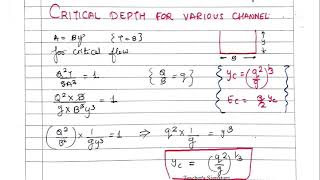 CRITICAL DEPTH FOR VARIOUS CHANNEL
A = By {T = B}
for critical flow
y
B
Q²T / gA³ = 1 {Q/B = q}
{ yc = (q²/g)^1/3
Q² × B / g × B³y³ = 1
Ec = 3/2 yc }
(Q²/B²) × 1/gy³ = 1 ⇒ q² × 1/g = y³
yc = (q²/g)^1/3